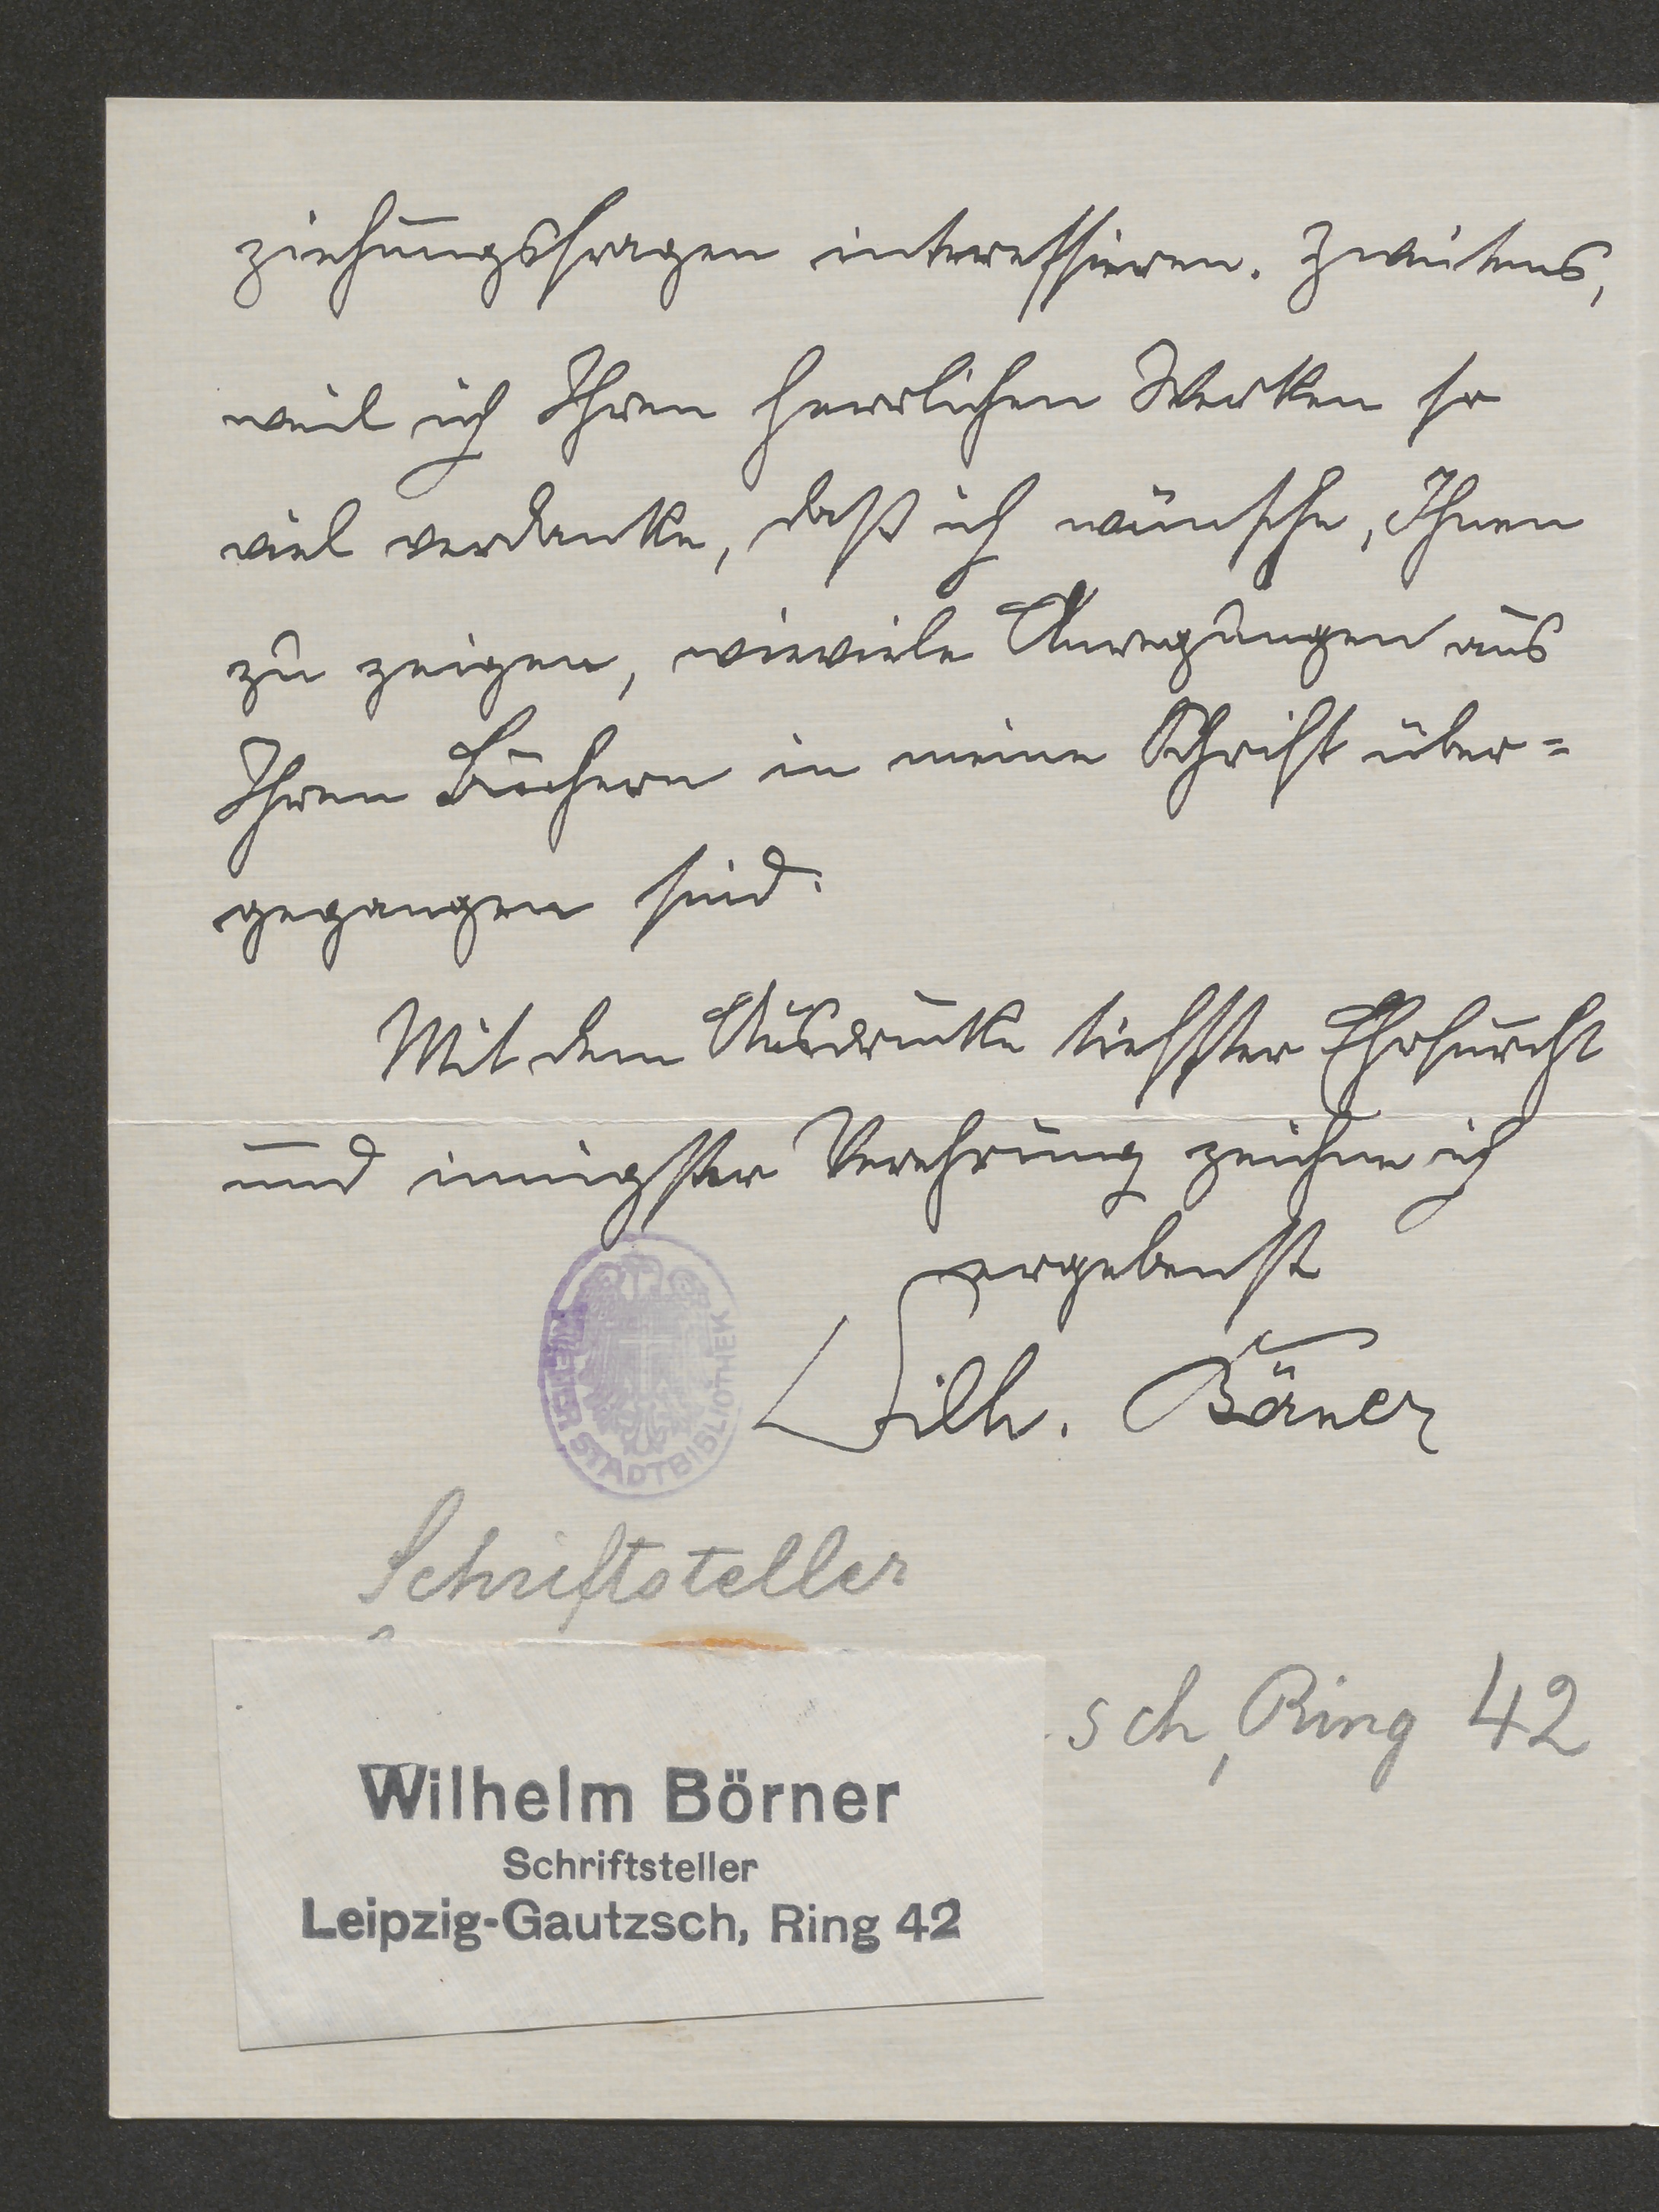 ziehungsfragen interessieren. Zweitens,
weil ich Ihren herrlichen Werken so
viel verdanke, daß ich wünsche, Ihnen
zu zeigen, wieviele Anregungen aus
Ihren Büchern in meine Schrift über=
gegangen sind.
Mit dem Ausdrucke tiefster Ehrfurcht
und innigster Verehrung zeichne ich
ergebenst
Wilh. Börner
WIENER STADTBIBLIOTHEK
Schriftsteller
sch, Ring 42
Wilhelm Börner
Schriftsteller
Leipzig-Gautzsch, Ring 42